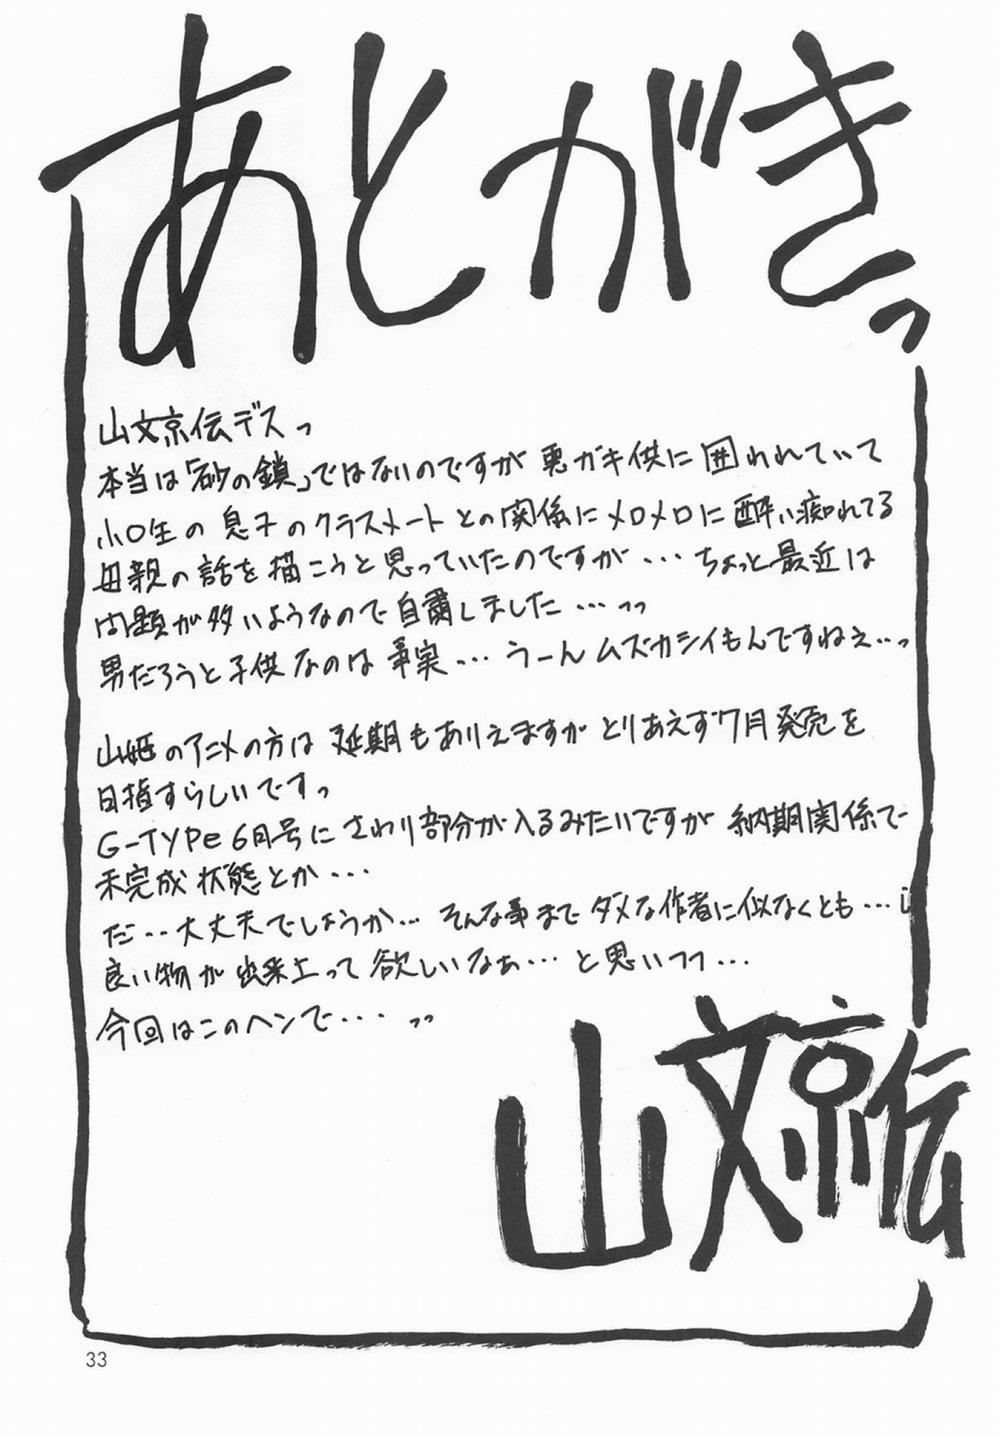 あとがきっ
山文京伝デスっ
本当は「砂の鎖」ではないのですが悪ガキ供に囲われていて
小〇生の息子のクラスメートとの関係にメロメロに酔い痴れてる
母親の話を描こうと思っていたのですが…ちょっと最近は
問題が多いようなので自粛しました…っっ
男だろうと子供なのは事実…うーんムズカシイもんですねえ…っ
山姫のアニメの方は延期もありえますがとりあえず7月発売を
目指すらしいですっ
G-TYPe6月号にさわり部分が入るみたいですが納期関係で
未完成状態とか…
だ…大丈夫でしょうか…そんな事までダメな作者に似なくとも…
良い物が出来上って欲しいなぁ…と思いつつ…
今回はこのヘンで…っっ
山文京伝
33